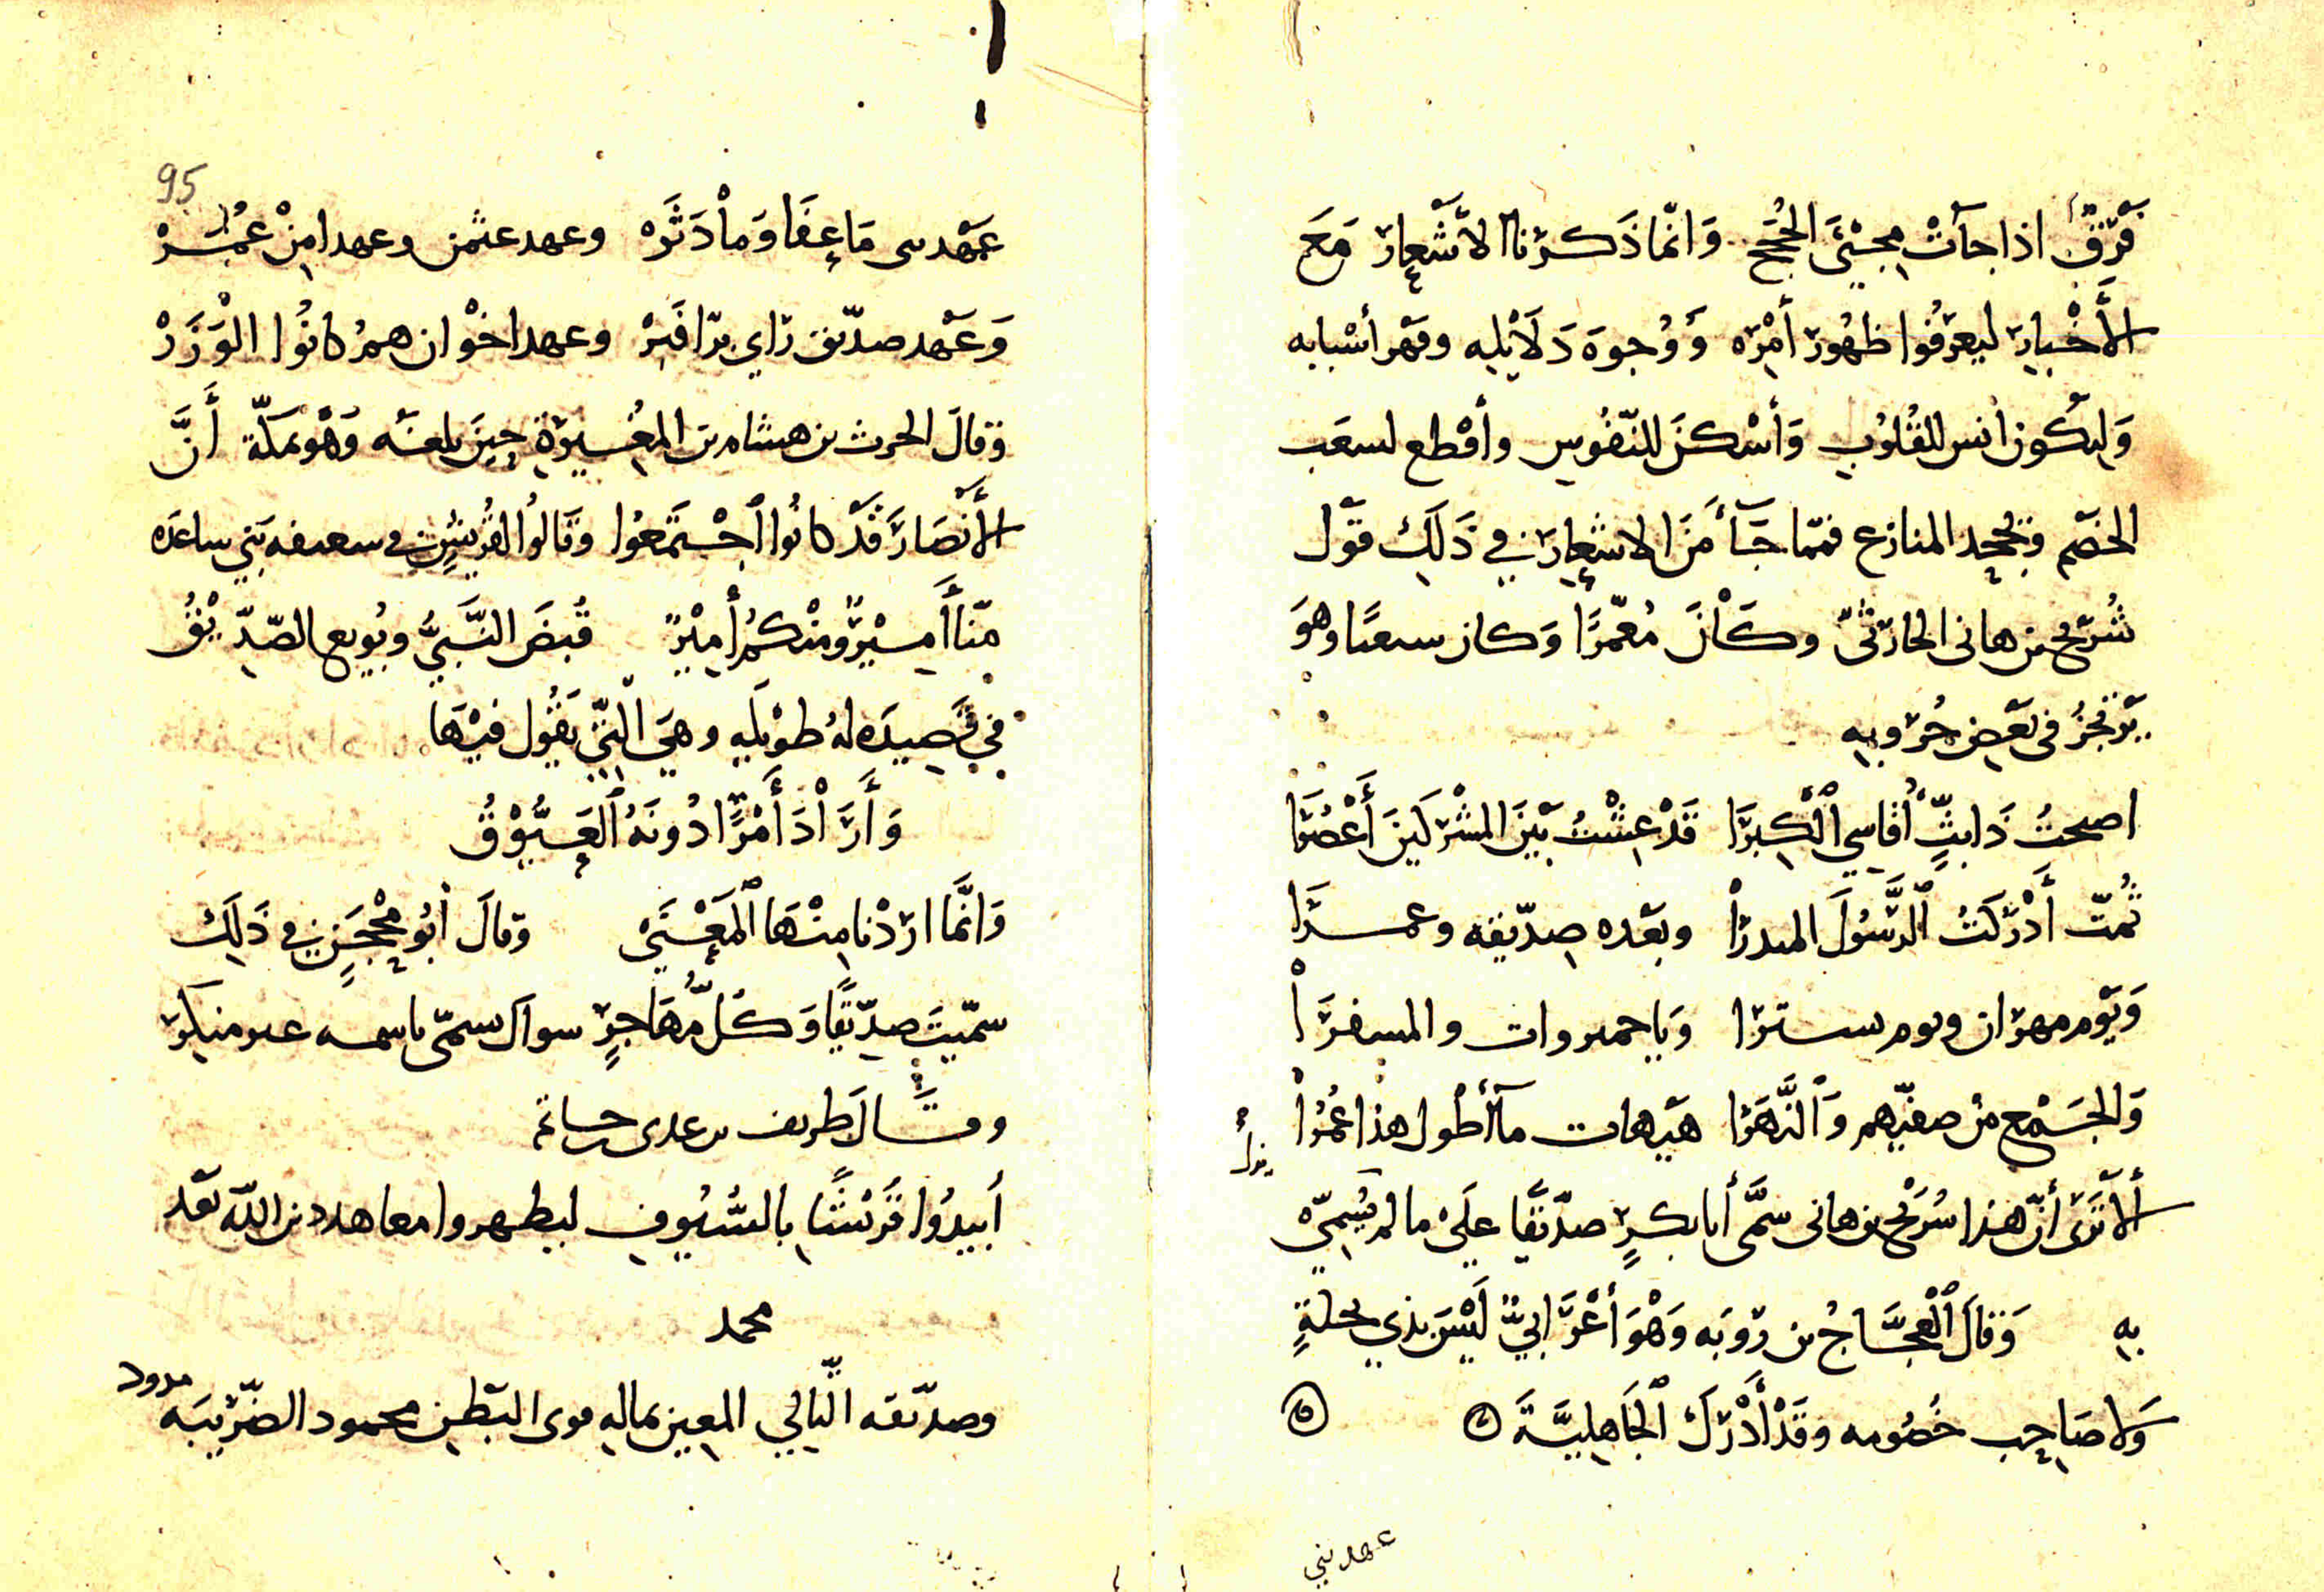 فرق اذا جآت مجئ الحجج وانما ذكرنا الاشعار مع
الأخبار ليعرفوا ظهور أمره ووجوه دلايله وقهر أسبابه
وليكون انس للقلوب وأسكن للنفوس وأقطع لسعب
الخصم المنازع فمما جآ من الاشعار في ذلك قول
شريح بن هانى الحارثى وكان معمرا وكان وهو
يرتجز فى بعض حروبه
اصبحت ذا بث أقاسي الكبرا قد عشت بين المشركين أعصرا
ثمت أدركت الرسول المنذرا وبعده صديقه وعمرا
ويوم مهران ويوم تسترا وياجميروات والمسقرا
والجمع من صفيهم والنهرا هيهات مآ أطول هذا عمرا
ألا ترى أن هذا شريح بن هانى سمى أبا بكر صديقا على ما لم يسمى
به وقال العجاج بن روبه وهو أعرابي ليس بذي نحلة
ولا صاحب خصومه وقد أدرك الجاهلية
عهد بني
95
عهد ما عفا وما دثره وعهد عثمن وعهدا من عمر
وعهد صديق راي برا فبر وعهد اخوان هم كانوا الوزر
وقال الحرث بن هشام بن المغيرة حين بلغه وهو بمكة أن
الأنصار قد كانوا اجتمعوا وقالوا لقريش في سقيفه بني ساعده
منا أمير ومنكم أمير قبض النبي وبويع الصديق
في قصيده له طويله وهي التي يقول فيها
وأراد أمرا دونه العيوق
وانما اردنا منها المعنى وقال أبو محجن في ذلك
سميت صديقا وكل مهاجر سواك سمى باسمه غير منكر
وقال طريف بن عدى بن حاتم
أبيدوا قريشا بالسيوف ليظهروا معاهد دين الله بعد
محمد
وصديقه التالي المعين بماله البطن محمود الضريبه مرود